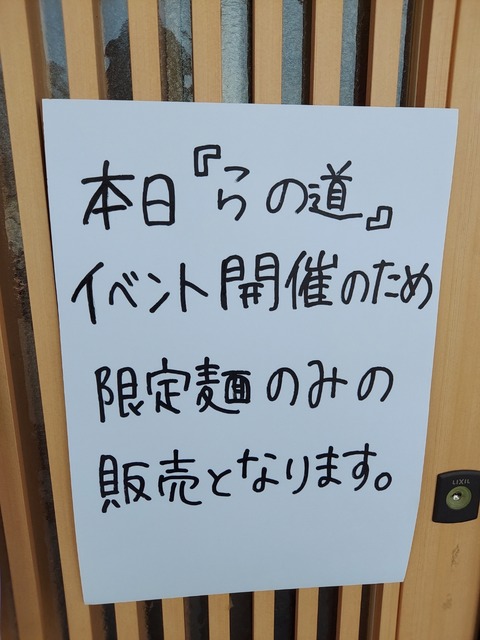 本日『らの道』
イベント開催のため
限定麺のみの
販売となります。
LIXIL